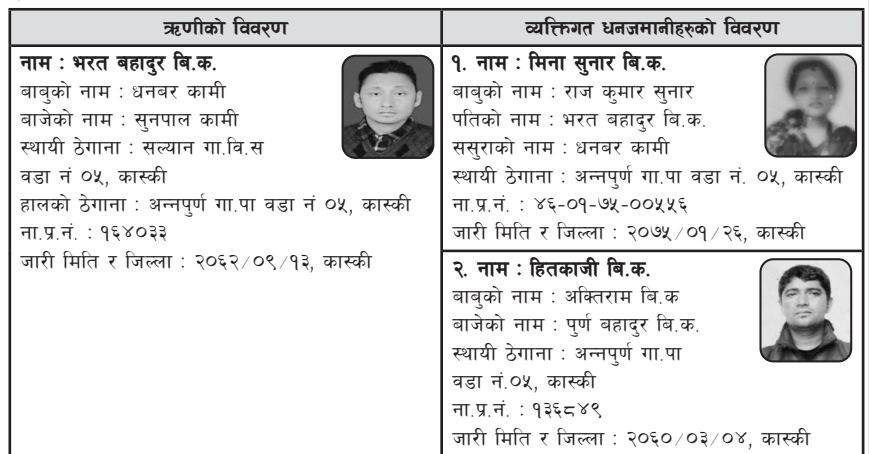 ऋणीको विवरण
नाम : भरत बहादुर बि.क.
बाबुको नाम : धनबर कामी
बाजेको नाम : सुनपाल कामी
स्थायी ठेगाना : सल्यान गा.वि.स
वडा नं ०५, कास्की
हालको ठेगाना : अन्नपुर्ण गा.पा वडा नं ०५, कास्की
ना.प्र.नं. : १६४०३३
जारी मिति र जिल्ला : २०६२/०९/१३, कास्की
व्यक्तिगत धनजमानीहरुको विवरण
१. नाम : मिना सुनार बि.क.
बाबुको नाम : राज कुमार सुनार
पतिको नाम : भरत बहादुर बि.क.
ससुराको नाम : धनबर कामी
स्थायी ठेगाना : अन्नपुर्ण गा.पा वडा नं. ०५, कास्की
ना.प्र.नं. : ४६-०१-७५-००५५६
जारी मिति र जिल्ला : २०७५/०१/२६, कास्की
२. नाम : हितकाजी बि.क.
बाबुको नाम : अक्तिराम बि.क
बाजेको नाम : पुर्ण बहादुर बि.क.
स्थायी ठेगाना : अन्नपुर्ण गा.पा
वडा नं.०५, कास्की
ना.प्र.नं. : १३६८४९
जारी मिति र जिल्ला : २०६०/०३/०४, कास्की